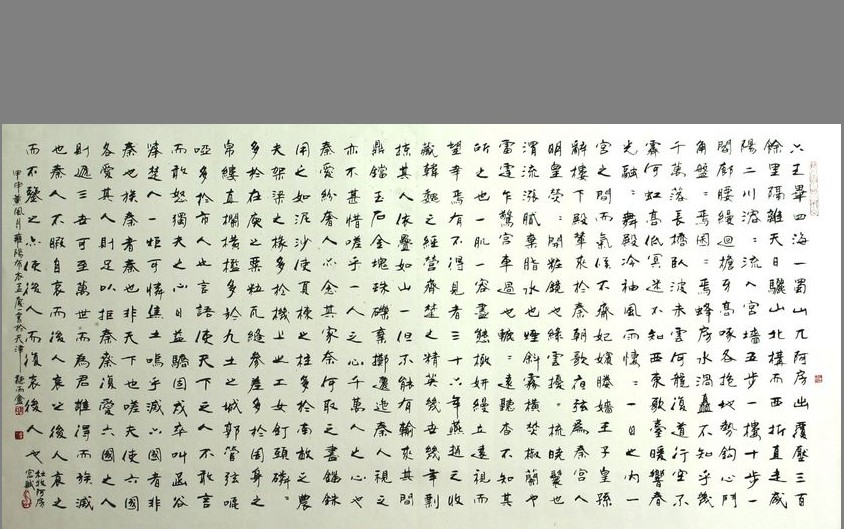 六王畢四海一蜀山兀阿房出覆壓三百
餘里隔離天日驪山北構而西折直走咸
陽二川溶=流入宮墻五步一樓十步一
閣廊腰縵迴檐牙高啄各抱地勢鈎心鬥
角盤=焉囷=焉蜂房水渦矗不知乎幾
千萬落長橋臥波未雲何龍復道行空不
霽何虹高低冥迷不知西東歌臺暖響春
光融=舞殿冷袖風雨悽=一日之内一
宮之間而氣候不齊妃嬪媵嬙王子皇孫
辭樓下殿輦來於秦朝歌夜弦為秦宮人
明星熒=開粧鏡也綠雲擾=梳曉鬟也
渭流漲膩棄脂水也煙斜霧橫焚椒蘭也
雷霆乍驚宮車過也轆=遠聽杳不知其
所之也一肌一容盡態極妍縵立遠視而
望幸焉有不得見者三十六年燕趙之收
藏韓魏之經營齊楚之精英幾世幾年剽
掠其人依疊如山一但不能有輸來其間
鼎鐺玉石金塊珠礫棄擲邐迤秦人視之
亦不甚惜嗟乎一人之心千萬人之心也
秦愛紛奢人亦念其家奈何取之盡錙銖
用之如泥沙使負棟之柱多於南畝之農
夫架梁之椽多於機上之工女釘頭磷=
多於在庾之粟粒瓦縫參差多於周身之
帛縷直欄橫檻多於九土之城郭管弦嘔
啞多於市人之言語使天下之人不敢言
而敢怒獨夫之心日益驕固戍卒叫函谷
舉楚人一炬可憐焦土嗚乎滅六國者非
秦也族秦者秦也非天下也嗟夫使六國
各愛其人則足以拒秦秦復愛六國之人
則遞三世可至萬世而為君誰得而族滅
也秦人不暇自哀而後人哀之後人哀之
而不鑒之亦使後人而復哀後人也
杜牧阿房
宮賦
甲申 於天津